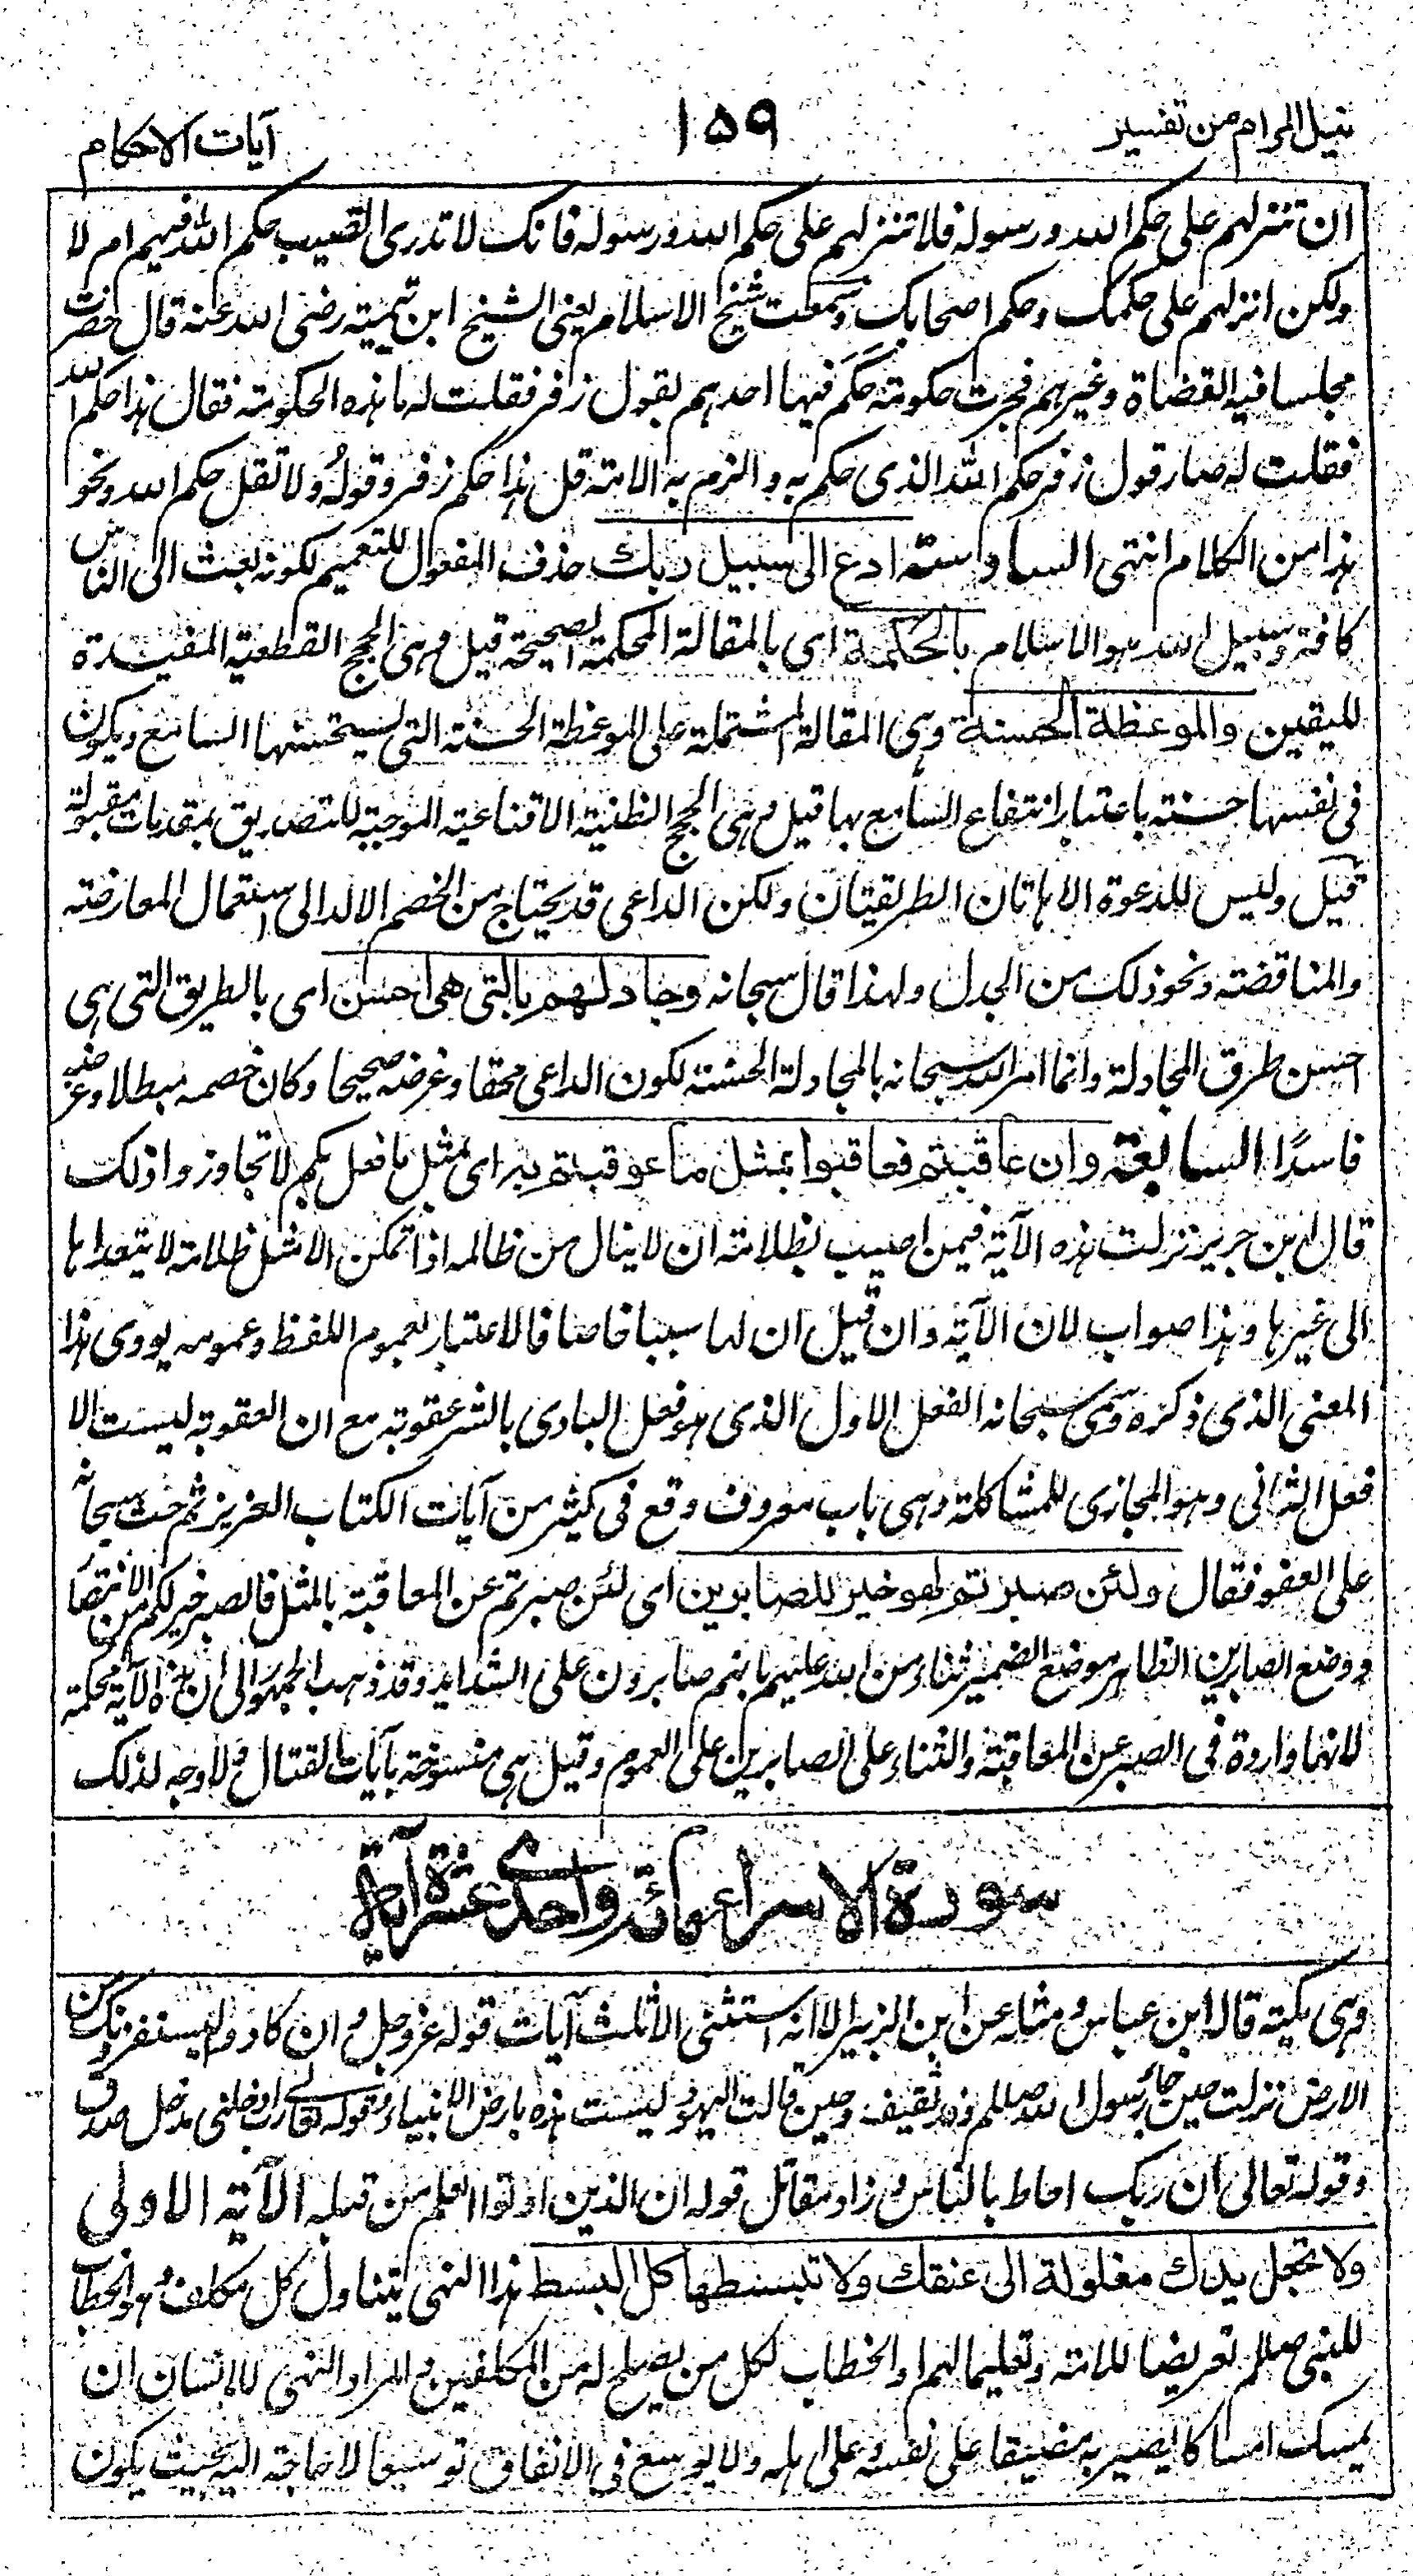 نيل المرام من تفسير ١٥٩ آيات الاحكام
ان تنزلهم على حكم الله ورسوله فلا تنزلهم على حكم الله ورسوله فانك لا تدرى اتصيب حكم الله فيهم ام لا
ولكن انزلهم على حكمك وحكم اصحابك وسمعت شيخ الاسلام يعنى الشيخ ابن تيمية رضى الله عنه قال حضرت
مجلسا فيه القضاة وغيرهم فجرت حكومة حَكَمَ فيها احدهم بقول زفر فقلت له ما هذه الحكومة فقال هذا حكم الله
فقلت له صار قول زفر حكم الله الذى حكم به والزم به الامة قل هذا حكم زفر وقولُه ولا تقل حكم الله ونحو
هذا من الكلام انتهى السادسة ادع الى سبيل ربك حذف المفعول للتعميم لكونه بعث الى الناس
كافة وسبيل الله هو الاسلام بالحكمة اى بالمقالة المحكمة الصحيحة قيل وهى الحجج القطعية المفيدة
لليقين والموعظة الحسنة وهى المقالة المشتملة على الموعظة الحسنة التى يستحسنها السامع ويكون
فى نفسها حسنة باعتبار انتفاع السامع بها قيل وهى الحجج الظنية الاقناعية الموجبة للتصديق بمقدمات مقبولة
قيل وليس للدعوة الا هاتان الطريقتان ولكن الداعى قد يحتاج من الخصم الالد الى استعمال المعارضة
والمناقضة ونحو ذلك من الجدل ولهذا قال سبحانه وجادلهم بالتى هى احسن اى بالطريق التى هى
احسن طرق المجادلة وانما امر الله سبحانه بالمجادلة الحسنة لكون الداعى محقا وغرضه صحيحا وكان خصمه مبطلا وغرضه
فاسدًا السابعة وان عاقبتم فعاقبوا بمثل ما عوقبتم به اى بمثل ما فعل بكم لا تجاوزوا ذلك
قال ابن جرير نزلت هذه الآية فيمن اصيب بظلامة ان لا ينال من ظالمه اذا تمكن الا مثل ظلامته لا يتعداها
الى غيرها وهذا صواب لان الآية وان قيل ان لها سببا خاصا فالاعتبار بعموم اللفظ وعمومه يودى هذا
المعنى الذى ذكره وسمى سبحانه الفعل الاول الذى هو فعل البادى بالشر عقوبة مع ان العقوبة ليست الا
فعل الثانى وهو المجازى للمشاكلة وهى باب معروف وقع فى كثير من آيات الكتاب العزيز ثم حث سبحانه
على العفو فقال ولئن صبرتم لهو خير للصابرين اى لئن صبرتم عن المعاقبة بالمثل فالصبر خير لكم من الانتصا
ووضع الصابرين الظاهر موضع الضمير ثناء من الله عليهم بانهم صابرون على الشدايد وقد ذهب الجمهور الى ان هذه الآية محكمة
لانها واردة فى الصبر عن المعاقبة والثناء على الصابرين على العموم وقيل هى منسوخة بآيات القتال ولا وجه لذلك
سورة الاسراء مائة واحدى عشرة آية
وهى مكية قاله ابن عباس ومثله عن ابن الزبير الا انه استثنى الا ثلث آيات قوله عز وجل وان كادوا ليستفزونك من
الارض نزلت حين جاء رسول الله صلعم وفد ثقيف وحين قالت اليهود ليست هذه بارض الانبياء وقوله تعالى رب ادخلنى مدخل صدق
وقوله تعالى ان ربك احاط بالناس وزاد مقاتل قوله ان الذين اوتوا العلم من قبله الآية الاولى
ولا تجعل يدك مغلولة الى عنقك ولا تبسطها كل البسط هذا النهى يتناول كل مكلف وهو الخطاب
للنبى صلعم تعريضا للامة وتعليما لهم او الخطاب لكل من يصلح له من المكلفين والمراد النهى للانسان ان
يمسك امساكا يصير به مضيقا على نفسه وعلى اهله ولا يوسع فى الانفاق توسيعا لا حاجة اليه بحيث يكون